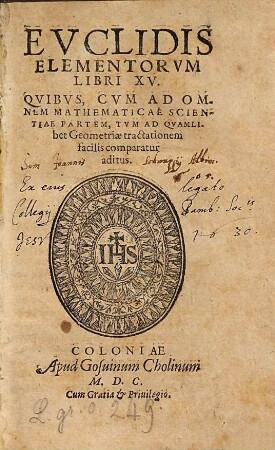 EVCLIDIS
ELEMENTORVM
LIBRI XV.
QVIBVS, CVM AD OM-
NEM MATHEMATICAE SCIEN-
TIAE PARTEM, TVM AD QVAMLI-
bet Geometriæ tractationem
facilis comparatur
aditus.
Sum Joannis
Ex eius legato
Collegij Bamb: Soc:is
Jesv 1630.
IHS
COLONIAE
Apud Gosuinum Cholinum
M. D. C.
Cum Gratia & Priuilegio.
L. gr. o. 249.